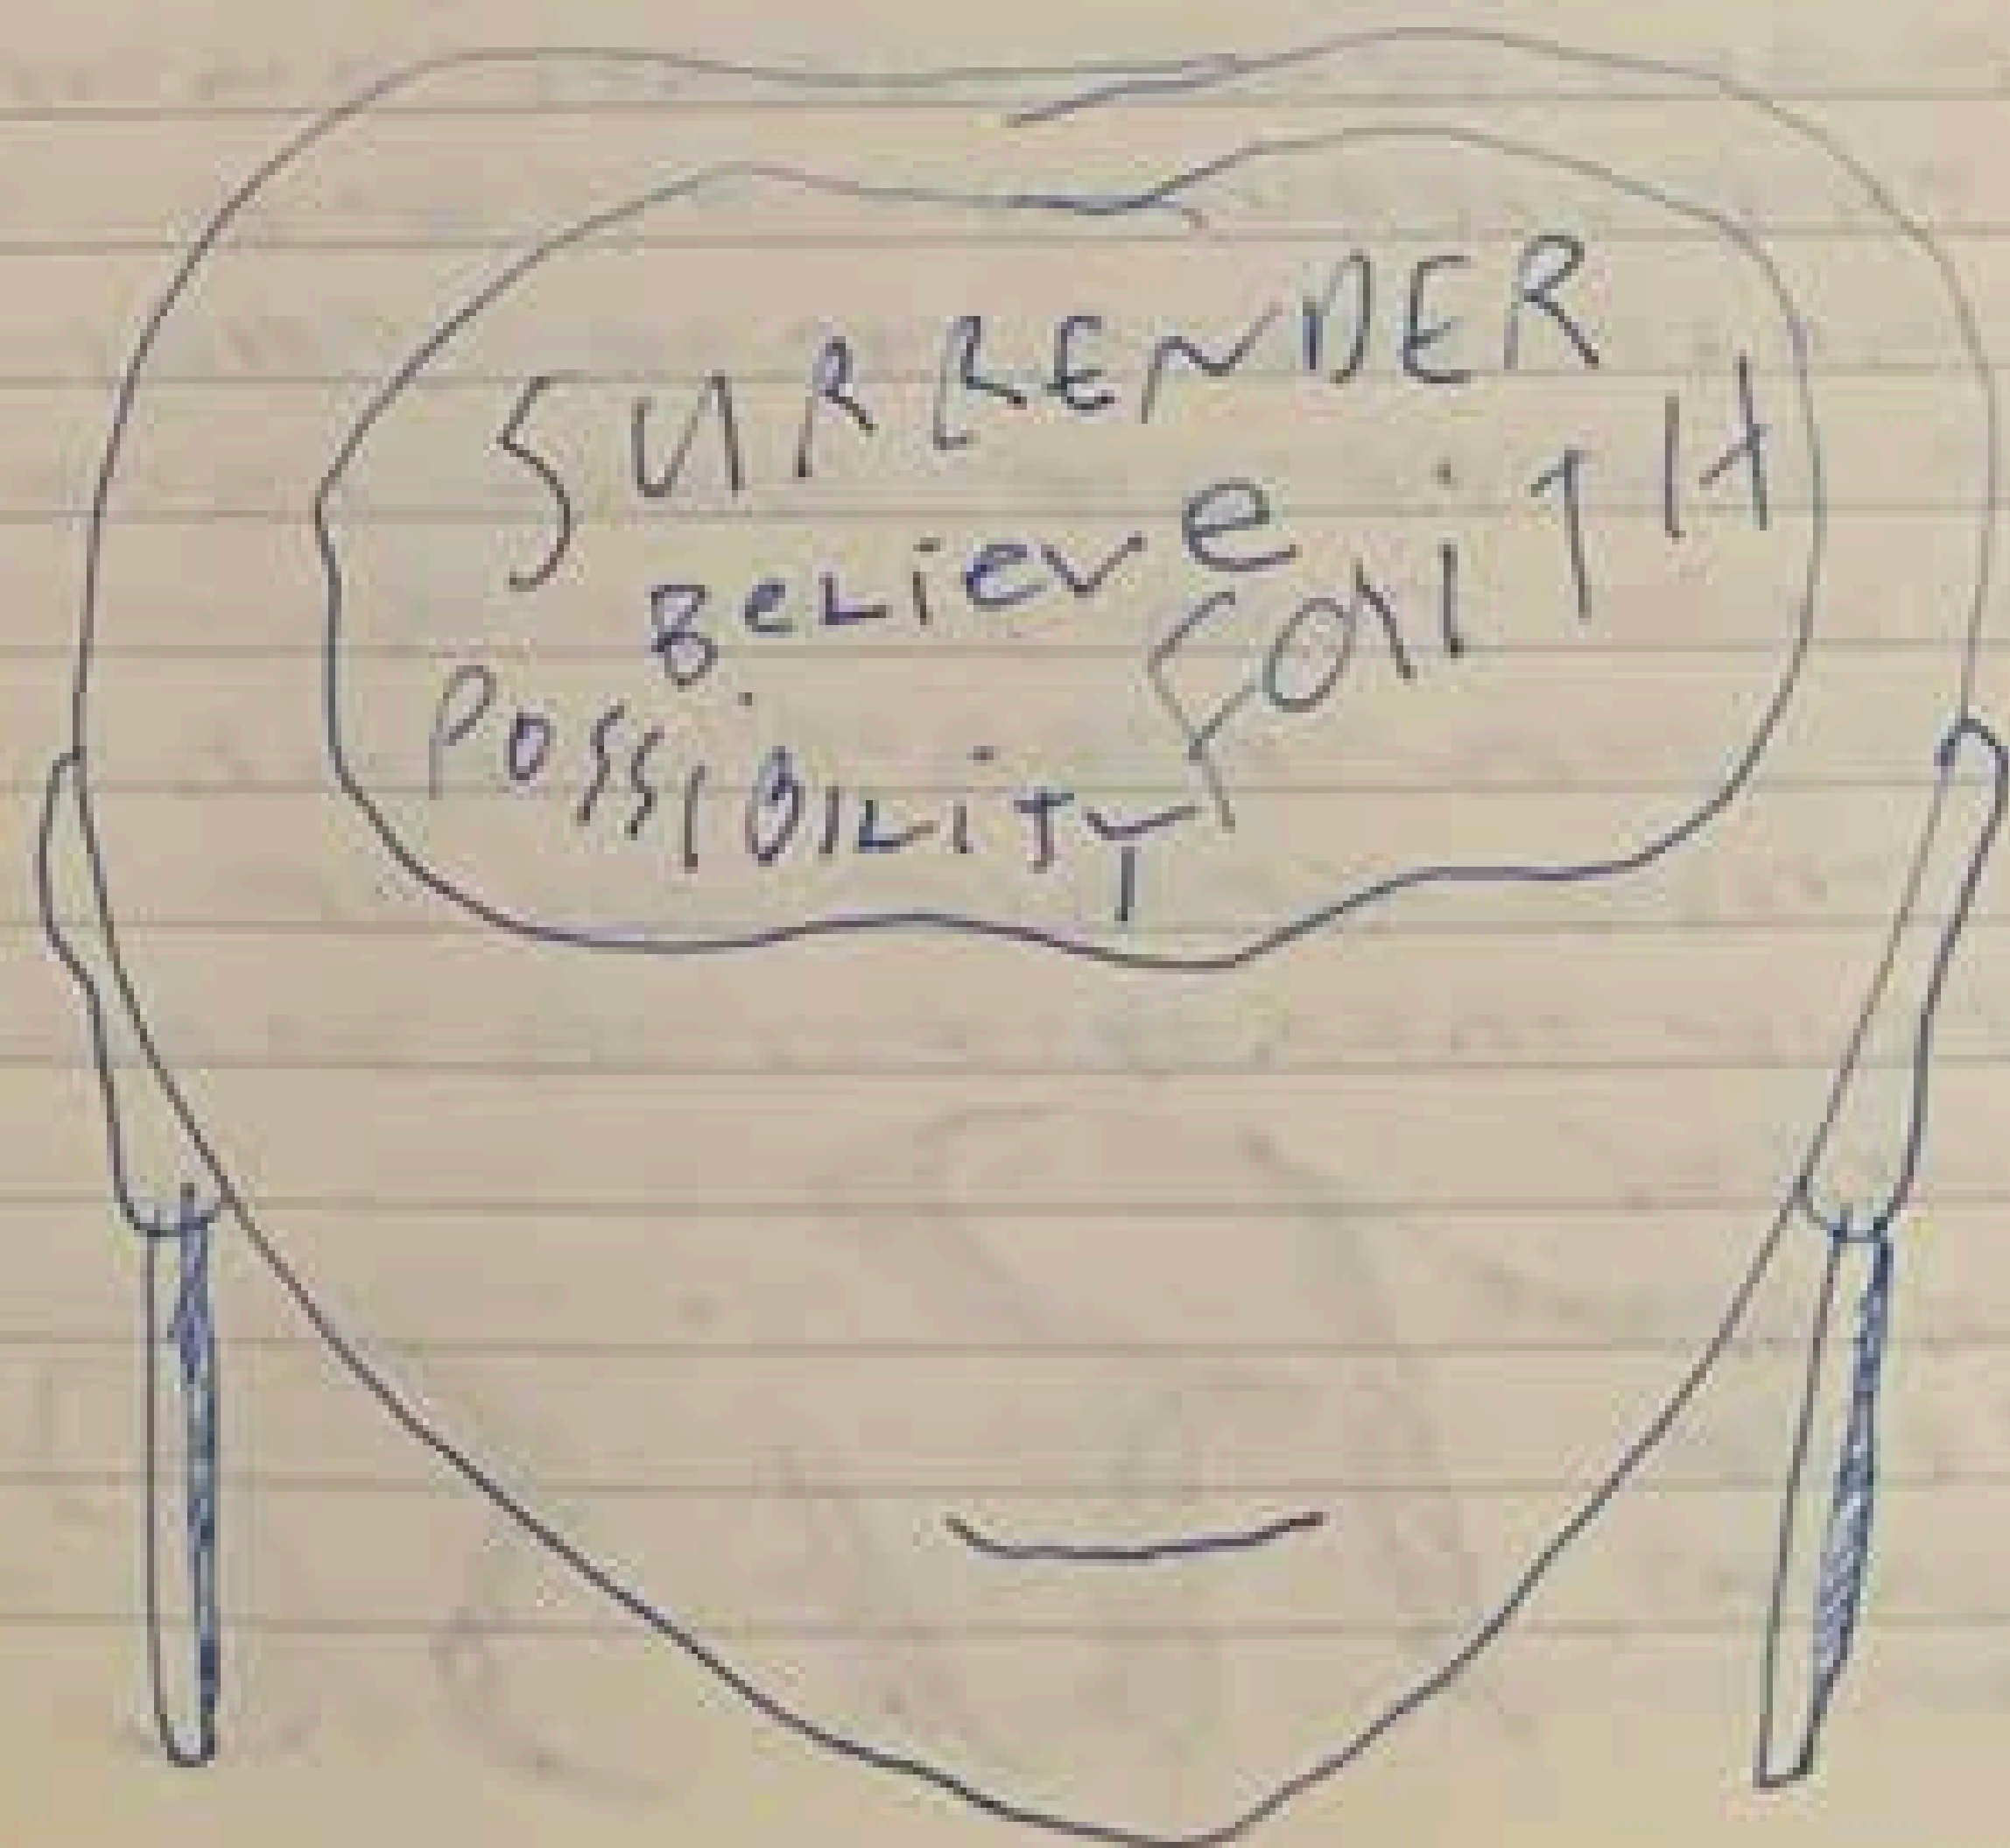 SURRENDER
BeLieve
FaiTH
POSSIBILITY